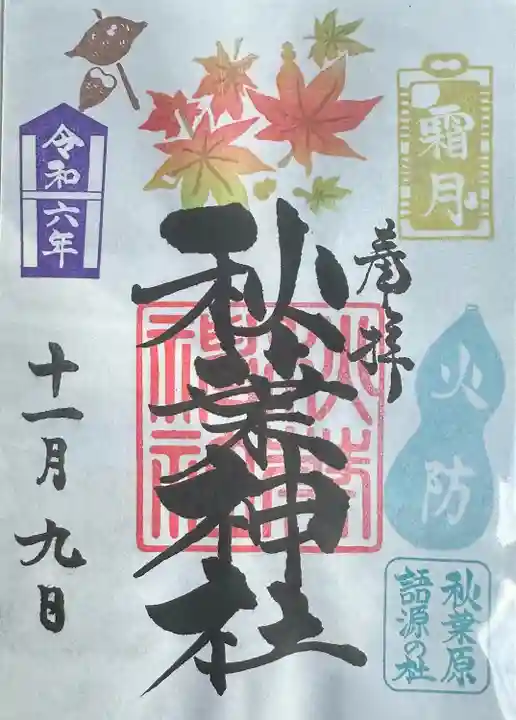 霜月
奉拝
火防
秋葉原
語源の社
秋葉神社
令和
六年
十一月九日